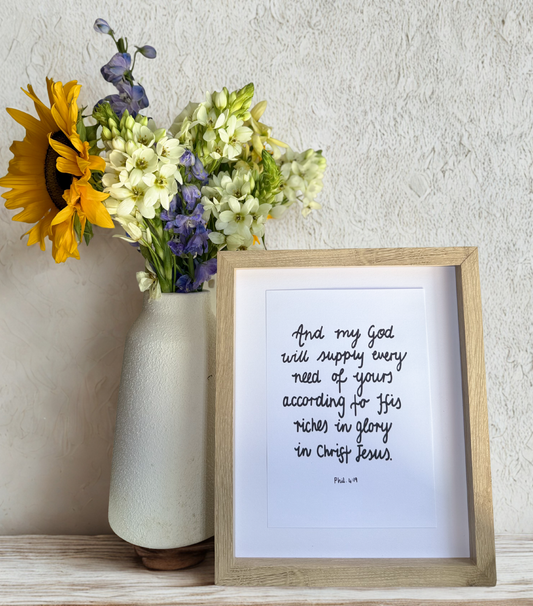 And my God
will supply every
need of yours
according to His
riches in glory
in Christ Jesus.
Phil. 4:19